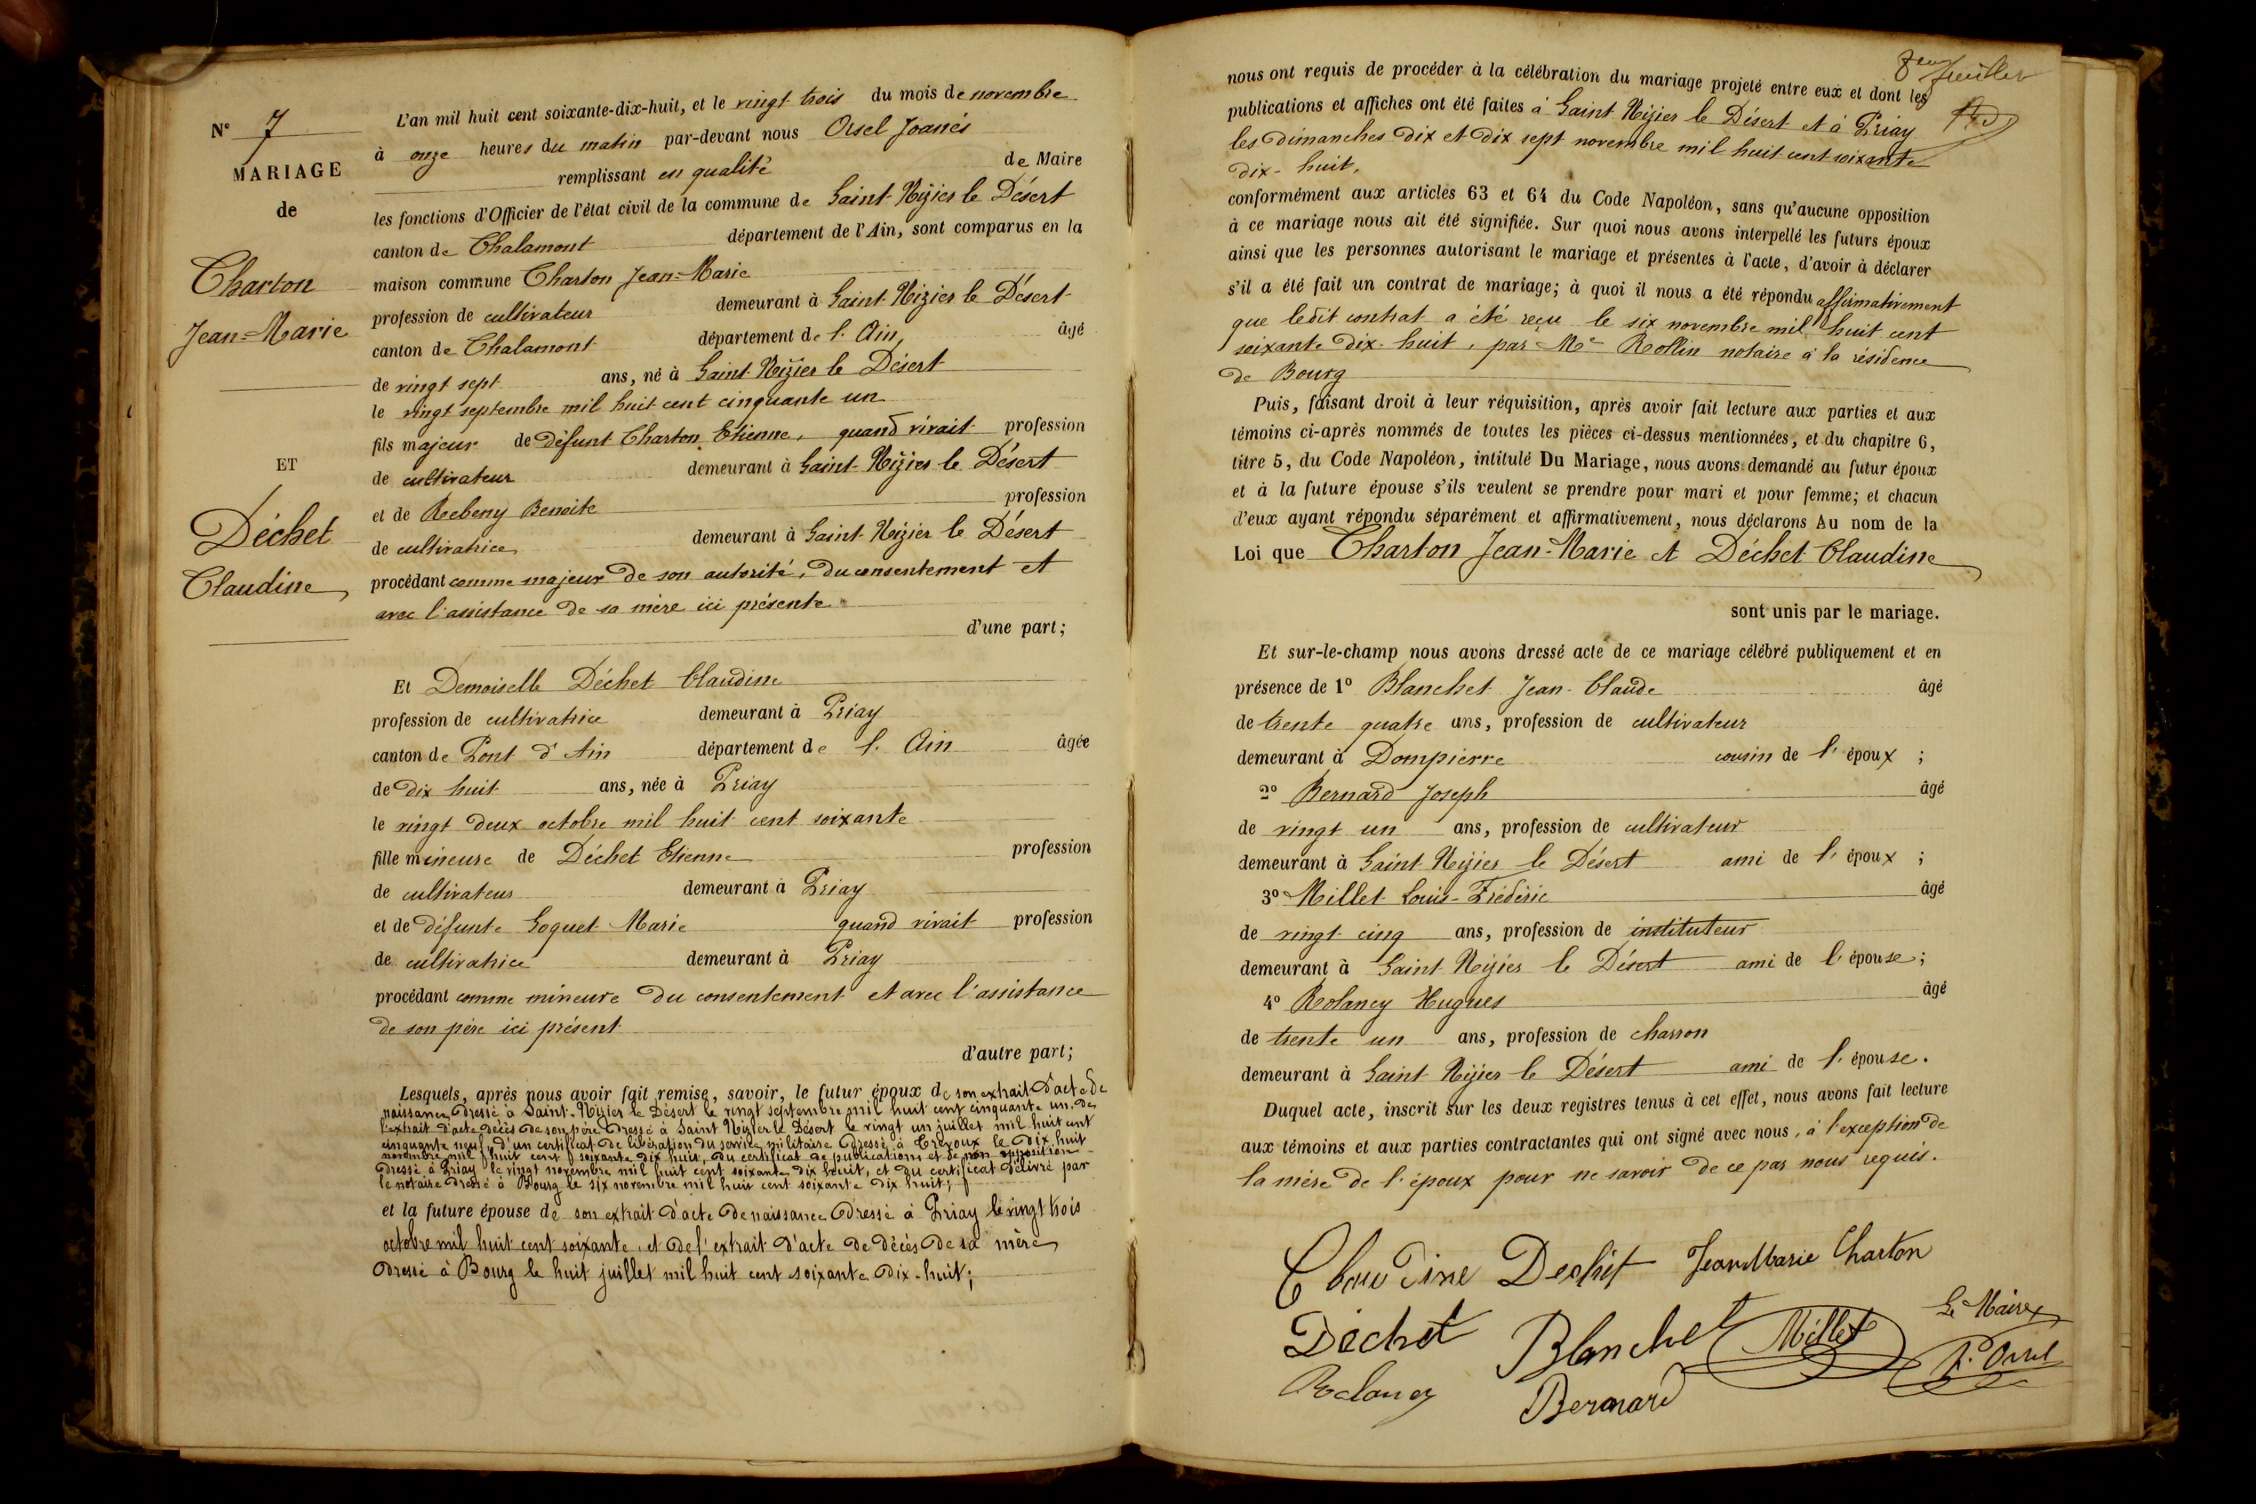 N° 7
MARIAGE
de
Charton
Jean-Marie
ET
Déchet
Claudine
L'an mil huit cent soixante-dix-huit, et le vingt trois du mois de novembre
à onze heures du matin par-devant nous Orsel Joanès
remplissant en qualité de Maire
les fonctions d'Officier de l'état civil de la commune de Saint-Nizier le Désert
canton de Chalamont département de l'Ain, sont comparus en la
maison commune Charton Jean-Marie
profession de cultivateur demeurant à Saint-Nizier le Désert
canton de Chalamont département de l'Ain, âgé
de vingt sept ans, né à Saint Nizier le Désert
le vingt septembre mil huit cent cinquante un
fils majeur de défunt Charton Etienne, quand vivait profession
de cultivateur demeurant à Saint-Nizier le Désert
et de Benoite profession
de cultivatrice demeurant à Saint-Nizier le Désert
procédant comme majeur de son autorité, du consentement et
avec l'assistance de sa mère ici présente
d'une part;
Et Demoiselle Déchet Claudine
profession de cultivatrice demeurant à Priay
canton de Pont d'Ain département de l'Ain âgée
de dix huit ans, née à Priay
le vingt deux octobre mil huit cent soixante
fille mineure de Déchet Etienne profession
de cultivateur demeurant à Priay
et de défunte Goguet Marie quand vivait profession
de cultivatrice demeurant à Priay
procédant comme mineure du consentement et avec l'assistance
de son père ici présent
d'autre part;
Lesquels, après nous avoir fait remise, savoir, le futur époux de son extrait d'acte de
naissance dressé à Saint-Nizier le Désert le vingt septembre mil huit cent cinquante un, de
l'extrait d'acte décès de son père dressé à Saint Nizier le Désert le vingt un juillet mil huit cent
cinquante neuf, d'un certificat de libération du service militaire dressé à Trévoux le dix huit
novembre mil huit cent soixante dix huit, du certificat de publications et de non opposition
dressé à Priay le vingt novembre mil huit cent soixante dix huit, et du certificat délivré par
le notaire dressé à Bourg le six novembre mil huit cent soixante dix huit;
et la future épouse de son extrait d'acte de naissance dressé à Priay le vingt trois
octobre mil huit cent soixante, et de l'extrait d'acte de décès de sa mère
dressé à Bourg le huit juillet mil huit cent soixante dix-huit;
8eme feuillet
nous ont requis de procéder à la célébration du mariage projeté entre eux et dont les
publications et affiches ont été faites à Saint Nizier le Désert et à Priay
les dimanches dix et dix sept novembre mil huit cent soixante
dix-huit,
conformément aux articles 63 et 64 du Code Napoléon, sans qu'aucune opposition
à ce mariage nous ait été signifiée. Sur quoi nous avons interpellé les futurs époux
ainsi que les personnes autorisant le mariage et présentes à l'acte, d'avoir à déclarer
s'il a été fait un contrat de mariage; à quoi il nous a été répondu affirmativement
que ledit contrat a été reçu le six novembre mil huit cent
soixante dix-huit, par Me Rollin notaire à la résidence
de Bourg
Puis, faisant droit à leur réquisition, après avoir fait lecture aux parties et aux
témoins ci-après nommés de toutes les pièces ci-dessus mentionnées, et du chapitre 6,
titre 5, du Code Napoléon, intitulé Du Mariage, nous avons demandé au futur époux
et à la future épouse s'ils veulent se prendre pour mari et pour femme; et chacun
d'eux ayant répondu séparément et affirmativement, nous déclarons Au nom de la
Loi que Charton Jean-Marie et Déchet Claudine
sont unis par le mariage.
Et sur-le-champ nous avons dressé acte de ce mariage célébré publiquement et en
présence de 1° Blanchet Jean-Claude âgé
de trente quatre ans, profession de cultivateur
demeurant à Dompierre cousin de l'époux ;
2° Bernard Joseph âgé
de vingt un ans, profession de cultivateur
demeurant à Saint Nizier le Désert ami de l'époux ;
3° Millet Louis-Frédéric âgé
de vingt cinq ans, profession de instituteur
demeurant à Saint Nizier le Désert ami de l'épouse;
4° Rolancy Hugues âgé
de trente un ans, profession de charron
demeurant à Saint Nizier le Désert ami de l'épouse.
Duquel acte, inscrit sur les deux registres tenus à cet effet, nous avons fait lecture
aux témoins et aux parties contractantes qui ont signé avec nous, à l'exception de
la mère de l'époux pour ne savoir de ce par nous requis.
Claudine Dechet Jean Marie Charton
Déchet Blanchet Millet Le Maire
Rolancy Bernard Orsel